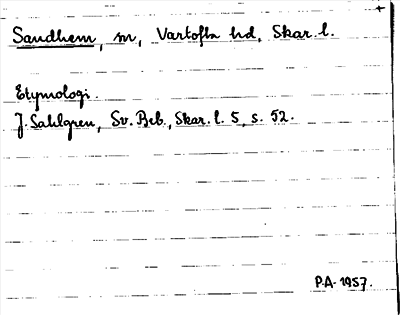 Sandhem, sn, Vartofta hd, Skar. l.
Etymologi.
J. Sahlgren, Sv. Beb., Skar. l. 5, s. 52.
P.A. 1957.